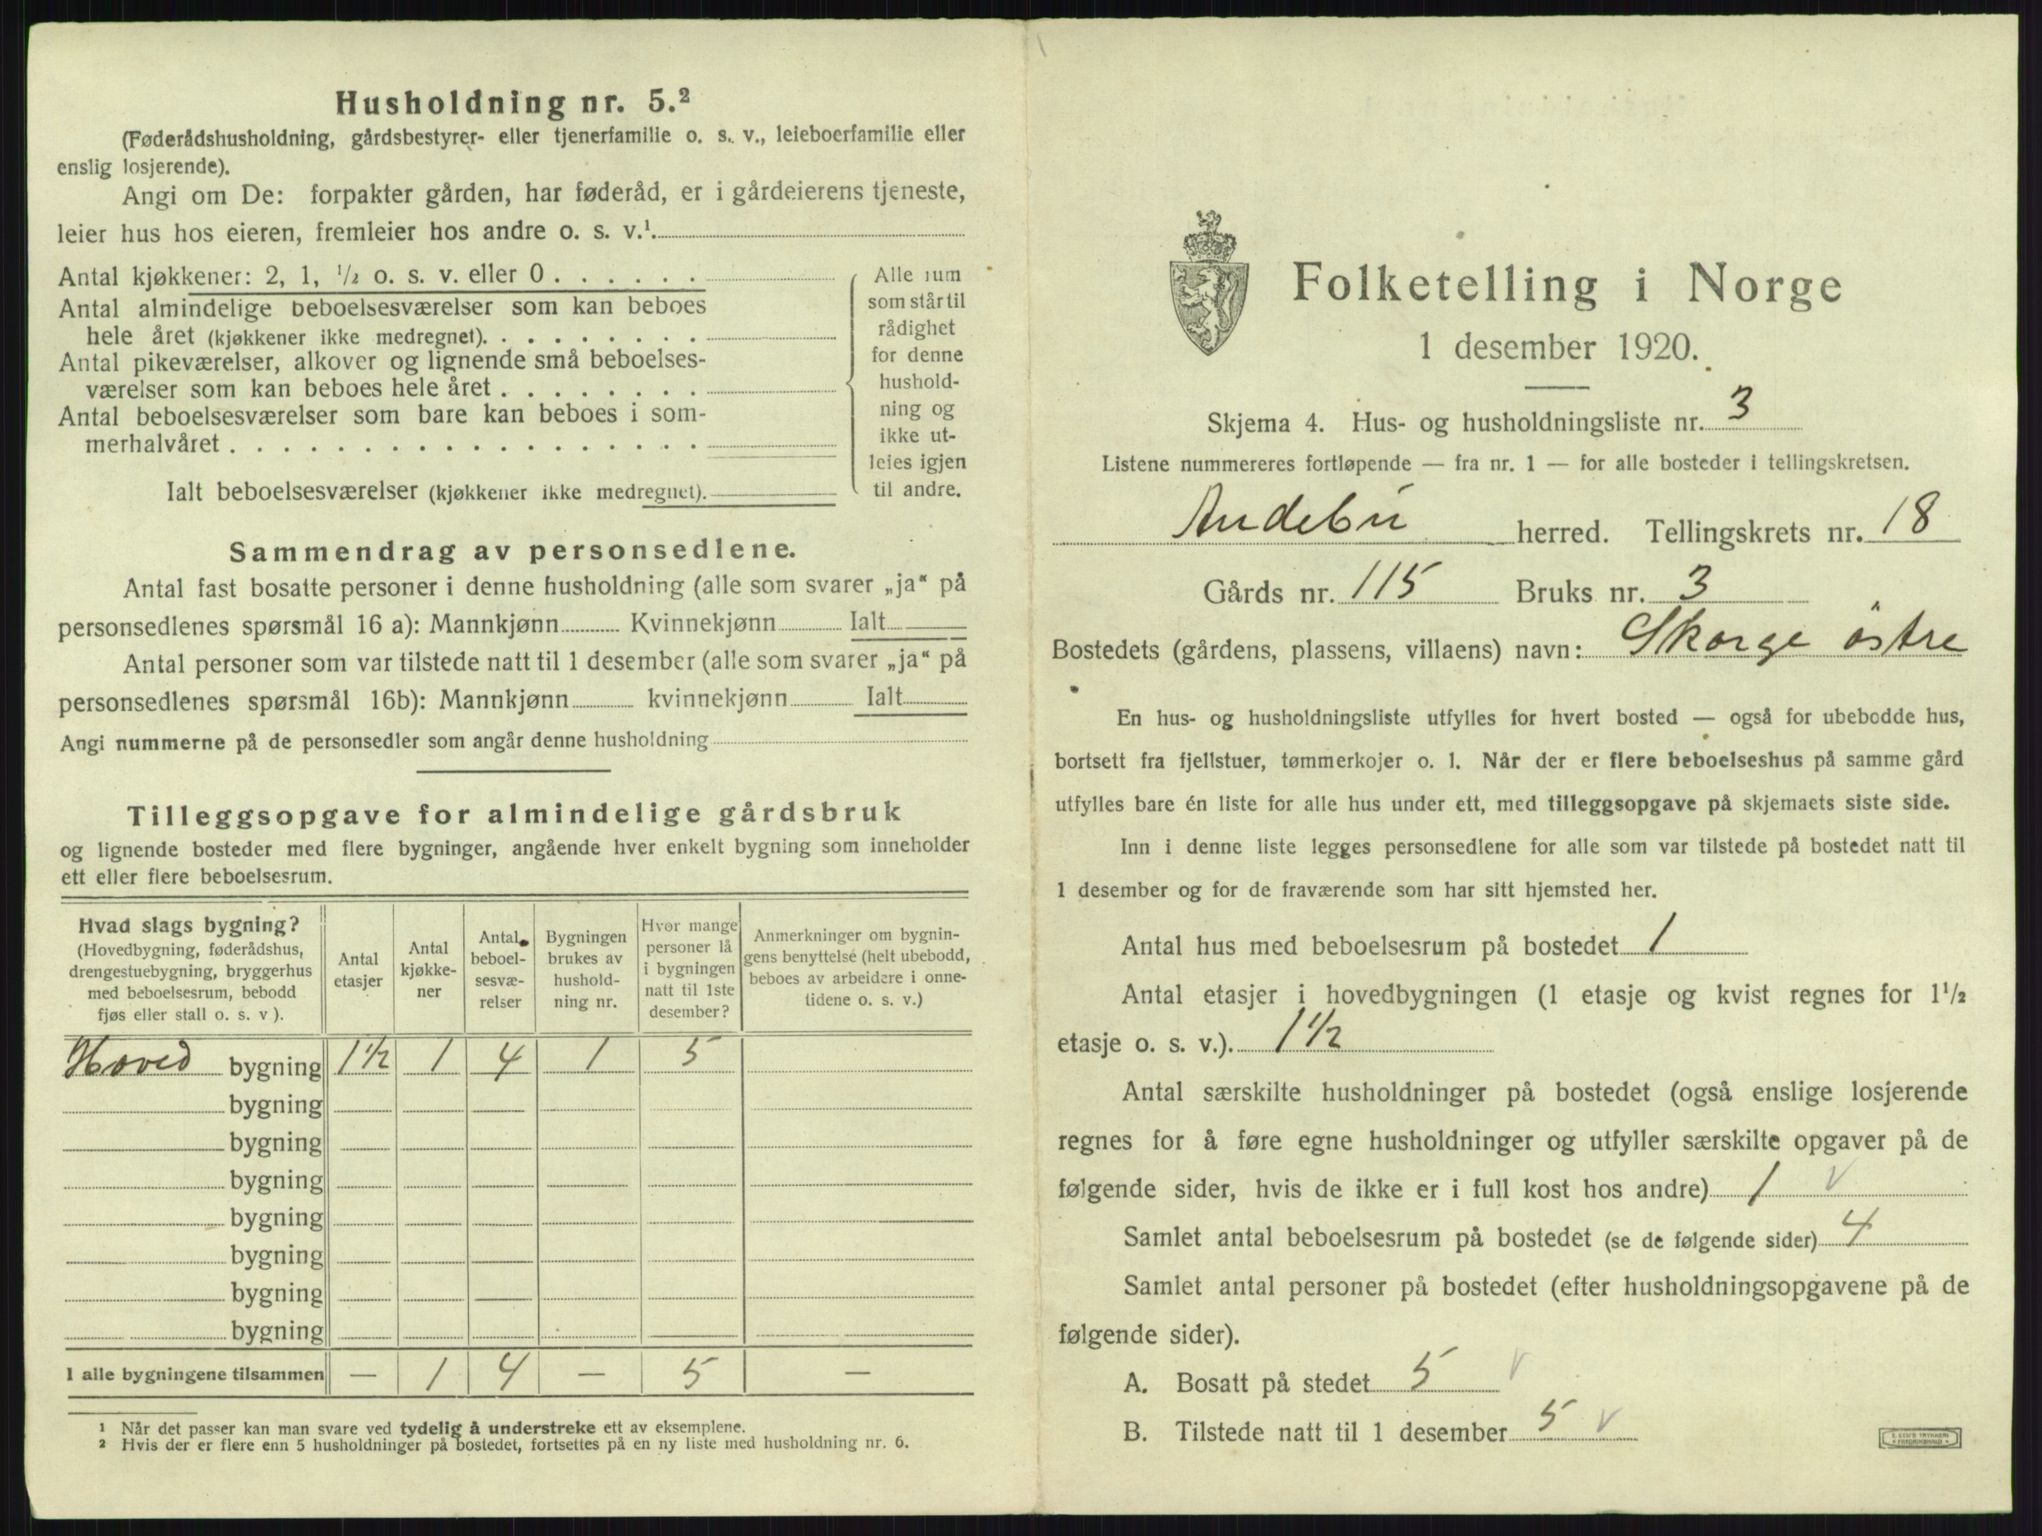 Husholdning nr. 5.²
(Føderådshusholdning, gårdsbestyrer- eller tjenerfamilie o. s. v., leieboerfamilie eller
enslig losjerende).
Angi om De: forpakter gården, har føderåd, er i gårdeierens tjeneste,
leier hus hos eieren, fremleier hos andre o. s. v.¹.
Antal kjøkkener: 2, 1, ¹/₂ o. s. v. eller 0 . . . . . .
Antal almindelige beboelsesværelser som kan beboes
hele året (kjøkkener ikke medregnet). . . . . . . . .
Antal pikeværelser, alkover og lignende små beboelses-
værelser som kan beboes hele året . . . . . . . .
Antal beboelsesværelser som bare kan beboes i som-
merhalvåret . . . . . . . . . . . . . . . . . .
Ialt beboelsesværelser (kjøkkener ikke medregnet).
Alle rum
som står til
rådighet
for denne
hushold-
ning og
ikke ut-
leies igjen
til andre.
Sammendrag av personsedlene.
Antal fast bosatte personer i denne husholdning (alle som svarer „ja“ på
personsedlenes spørsmål 16 a): Mannkjønn Kvinnekjønn Ialt
Antal personer som var tilstede natt til 1 desember (alle som svarer „ja“ på
personsedlenes spørsmål 16b): Mannkjønn kvinnekjønn Ialt
Angi nummerne på de personsedler som angår denne husholdning
Tilleggsopgave for almindelige gårdsbruk
og lignende bosteder med flere bygninger, angående hver enkelt bygning som inneholder
ett eller flere beboelsesrum.
Hvad slags bygning?
(Hovedbygning, føderådshus,
drengestuebygning, bryggerhus
med beboelsesrum, bebodd
fjøs eller stall o. s. v ).
Antal
etasjer
Antal
kjøkke-
ner
Antal
beboel-
sesvæ-
relser
Bygningen
brukes av
hushold-
ning nr.
Hvor mange
personer lå
i bygningen
natt til 1ste
desember?
Anmerkninger om bygnin-
gens benyttelse (helt ubebodd,
beboes av arbeidere i onne-
tidene o. s. v.)
Hoved bygning 1½ 1 4 1 5
bygning
bygning
bygning
bygning
bygning
bygning
bygning
I alle bygningene tilsammen — 1 4 — 5 —
¹ Når det passer kan man svare ved tydelig å understreke ett av eksemplene.
² Hvis der er flere enn 5 husholdninger på bostedet, fortsettes på en ny liste med husholdning nr. 6.
Folketelling i Norge
1 desember 1920.
Skjema 4. Hus- og husholdningsliste nr. 3
Listene nummereres fortløpende — fra nr. 1 — for alle bosteder i tellingskretsen.
Andebu herred. Tellingskrets nr. 18
Gårds nr. 115 Bruks nr. 3
Bostedets (gårdens, plassens, villaens) navn: Skorge östre
En hus- og husholdningsliste utfylles for hvert bosted — også for ubebodde hus,
bortsett fra fjellstuer, tømmerkojer o. l. Når der er flere beboelseshus på samme gård
utfylles bare én liste for alle hus under ett, med tilleggsopgave på skjemaets siste side.
Inn i denne liste legges personsedlene for alle som var tilstede på bostedet natt til
1 desember og for de fraværende som har sitt hjemsted her.
Antal hus med beboelsesrum på bostedet 1
Antal etasjer i hovedbygningen (1 etasje og kvist regnes for 1¹/₂
etasje o. s. v.). 1½
Antal særskilte husholdninger på bostedet (også enslige losjerende
regnes for å føre egne husholdninger og utfyller særskilte opgaver på de
følgende sider, hvis de ikke er i full kost hos andre) 1 v
Samlet antal beboelsesrum på bostedet (se de følgende sider) 4
Samlet antal personer på bostedet (efter husholdningsopgavene på de
følgende sider).
A. Bosatt på stedet 5 v
B. Tilstede natt til 1 desember 5 v